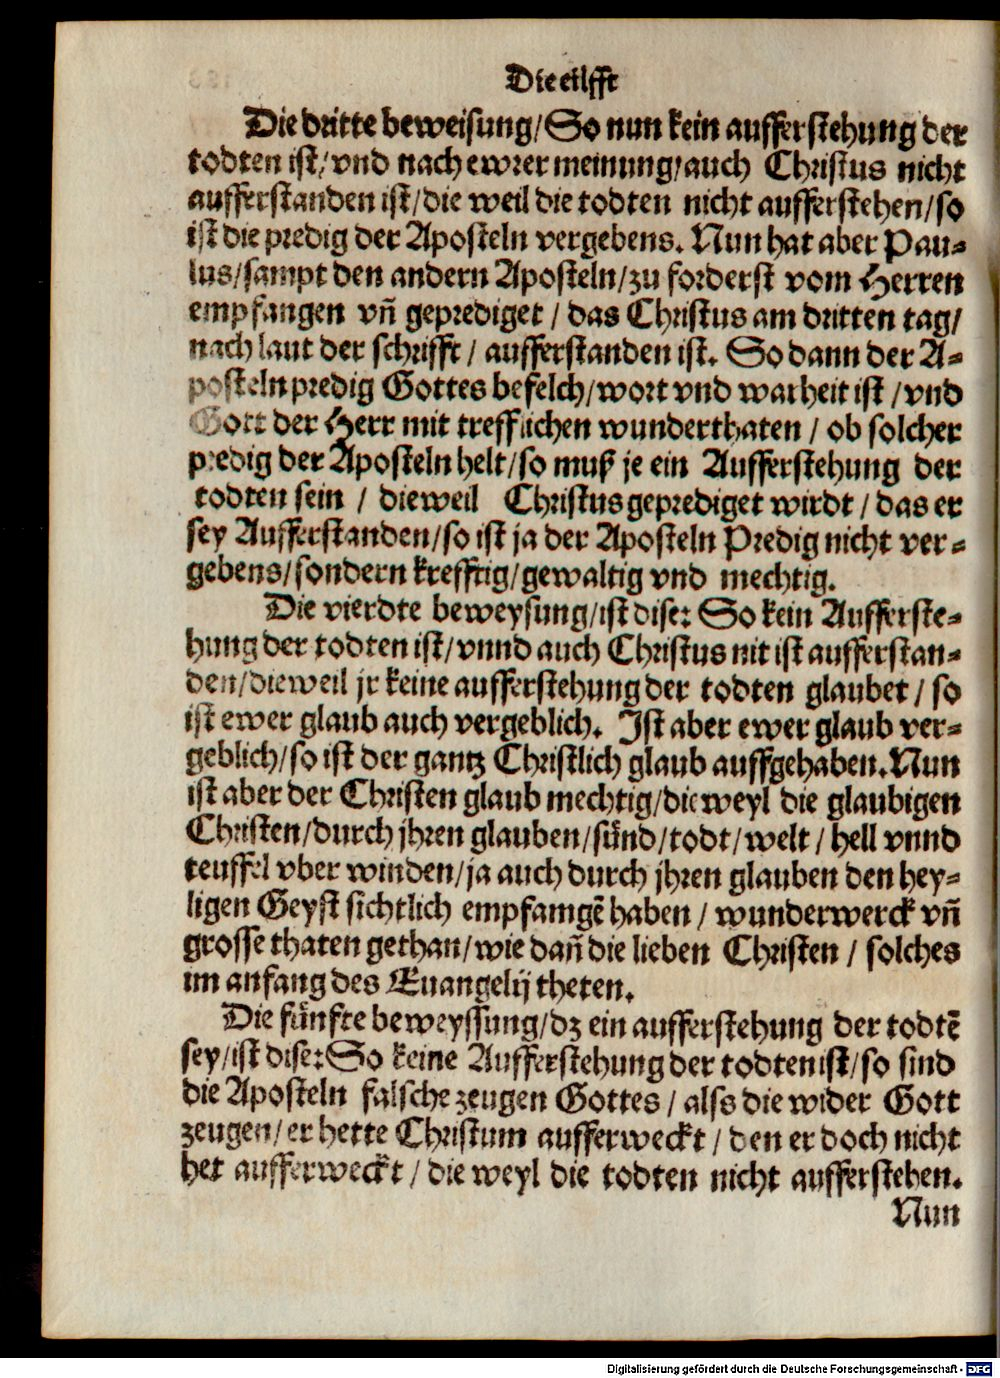 Die eilfft
Die dritte beweisung/So nun kein aufferstehung der
todten ist/vnd nach ewrer meinung/auch Christus nicht
aufferstanden ist/die weil die todten nicht aufferstehen/so
ist die predig der Aposteln vergebens. Nun hat aber Pau-
lus/sampt den andern Aposteln/zu forderst vom Herren
empfangen vñ geprediget / das Christus am dritten tag/
nach laut der schrifft / aufferstanden ist. So dann der A-
posteln predig Gottes befelch/wort vnd warheit ist /vnd
Gott der Herr mit trefflichen wunderthaten / ob solcher
predig der Aposteln helt/so muß je ein Aufferstehung der
todten sein / dieweil Christus geprediget wirdt / das er
sey Aufferstanden/so ist ja der Aposteln Predig nicht ver-
gebens/sondern krefftig/gewaltig vnd mechtig.
Die vierdte beweysung/ist dise: So kein Aufferste-
hung der todten ist/vnnd auch Christus nit ist aufferstan-
den/dieweil jr keine aufferstehung der todten glaubet / so
ist ewer glaub auch vergeblich. Ist aber ewer glaub ver-
geblich/so ist der gantz Christlich glaub auffgehaben.Nun
ist aber der Christen glaub mechtig/die weyl die glaubigen
Christen/durch jhren glauben/sünd/todt/welt / hell vnnd
teuffel vber winden/ja auch durch jhren glauben den hey-
ligen Geyst sichtlich empfamgẽ haben / wunderwerck vñ
grosse thaten gethan/wie dañ die lieben Christen / solches
im anfang des Euangelij theten.
Die fünfte beweyssung/dz ein aufferstehung der todtẽ
sey/ist dise:So keine Aufferstehung der todten ist/so sind
die Aposteln falsche zeugen Gottes / alss die wider Gott
zeugen/er hette Christum aufferweckt / den er doch nicht
het aufferweckt / die weyl die todten nicht aufferstehen.
Nun
Digitalisierung gefördert durch die Deutsche Forschungsgemeinschaft - DFG